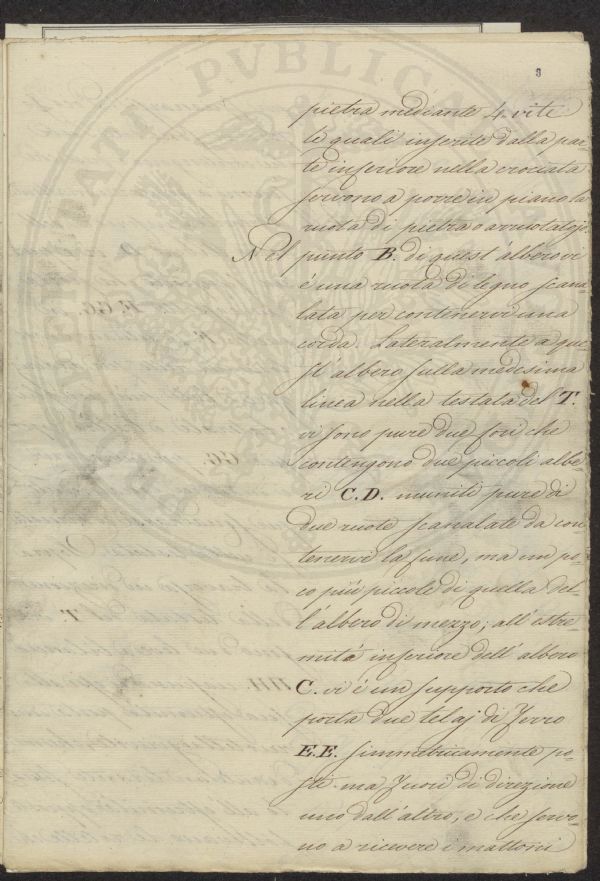 pietra mediante 4. vite
le quali inserite dalla par-
te inferiore nella crociata
servono a porre in piano la
ruota di pietra o arruotatojo.
Nel punto B. di quest' albero vi
é una ruota di legno scana-
lata per contenervi una
corda. Lateralmente a que-
st' albero sulla medesima
linea nella testata del T.
vi sono pure due fori che
contengono due piccoli albe-
ri C.D. muniti pure di
due ruote scanalate da con-
tenervi la fune, ma un po-
co più piccole di quella del-
l' albero di mezzo; all' estre-
mitá inferiore dell' albero
C. vi é un supporto che
porta due telaj di ferro
E.E. simmetricamente po-
sti ma fuori di direzione
uno dall' altro, e che servo-
no a ricevere i mattoni